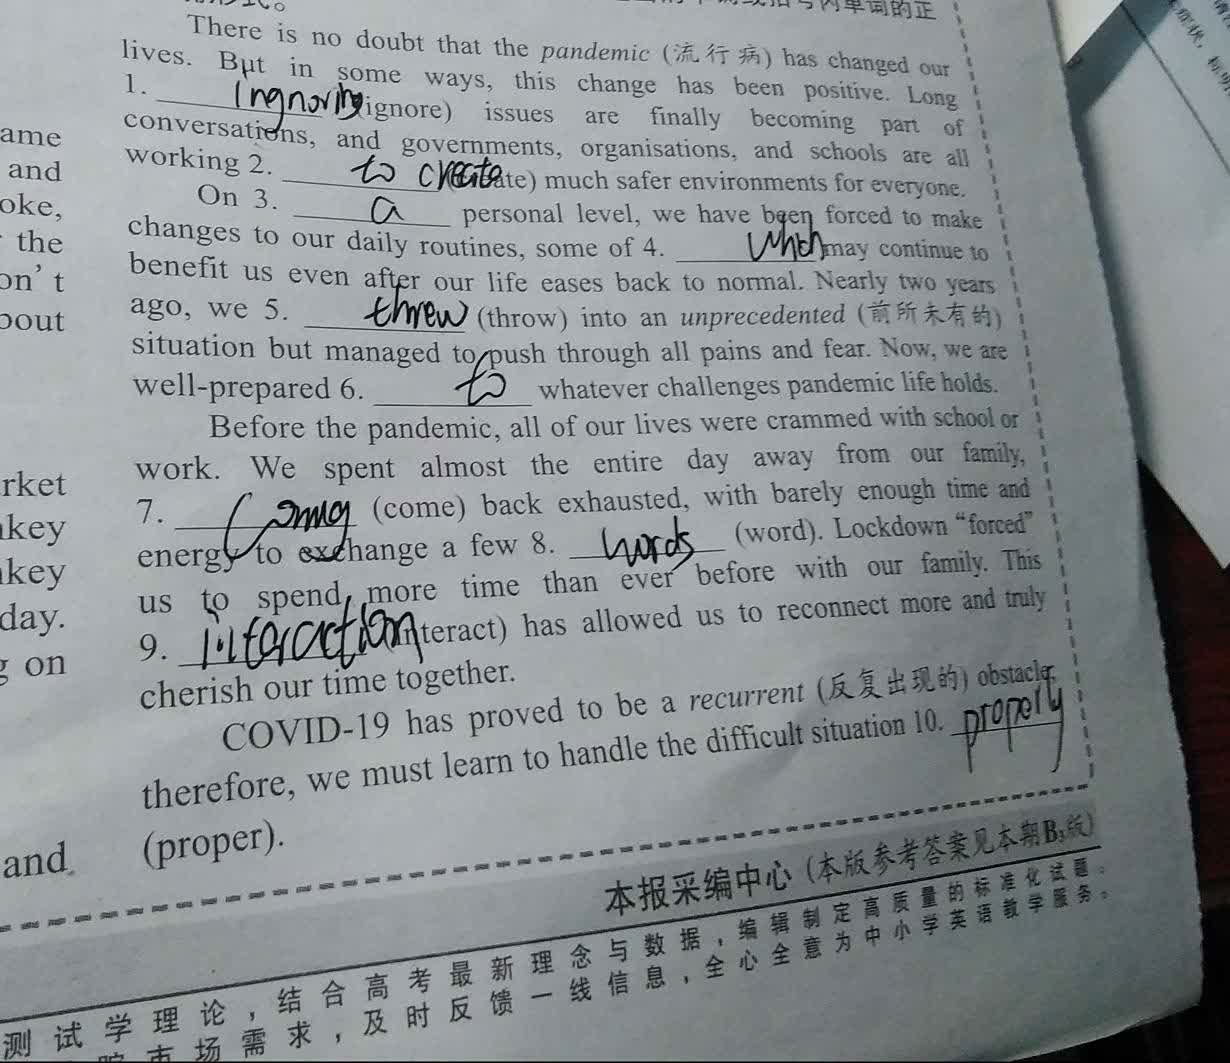 单词的正
There is no doubt that the pandemic (流行病) has changed our
lives. But in some ways, this change has been positive. Long
1. Ingnoring (ignore) issues are finally becoming part of
conversations, and governments, organisations, and schools are all
working 2. to create ate) much safer environments for everyone.
On 3. a personal level, we have been forced to make
changes to our daily routines, some of 4. which may continue to
benefit us even after our life eases back to normal. Nearly two years
ago, we 5. threw (throw) into an unprecedented (前所未有的)
situation but managed to push through all pains and fear. Now, we are
well-prepared 6. to whatever challenges pandemic life holds.
Before the pandemic, all of our lives were crammed with school or
work. We spent almost the entire day away from our family,
7. (come) back exhausted, with barely enough time and
energy to exchange a few 8. words (word). Lockdown “forced”
us to spend more time than ever before with our family. This
9. interaction teract) has allowed us to reconnect more and truly
cherish our time together.
COVID-19 has proved to be a recurrent (反复出现的) obstacle,
therefore, we must learn to handle the difficult situation 10. propely
(proper).
ame
and
oke,
the
on't
bout
rket
key
key
day.
g on
and
本报采编中心 (本版参考答案见本期B3版)
测试学理论，结合高考最新理念与数据，编辑制定高质量的标准化试题。
市场需求，及时反馈一线信息，全心全意为中小学英语教学服务。